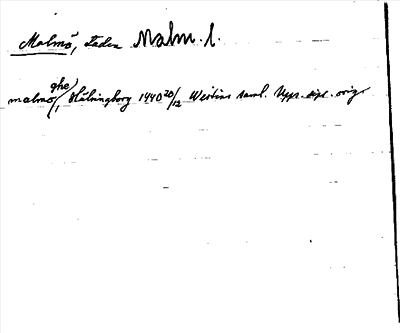 Malmö, Staden Malm. l.
malmöghe, Hälsingborg 1440 20/12 Westins saml. Upps. dipl. orig.